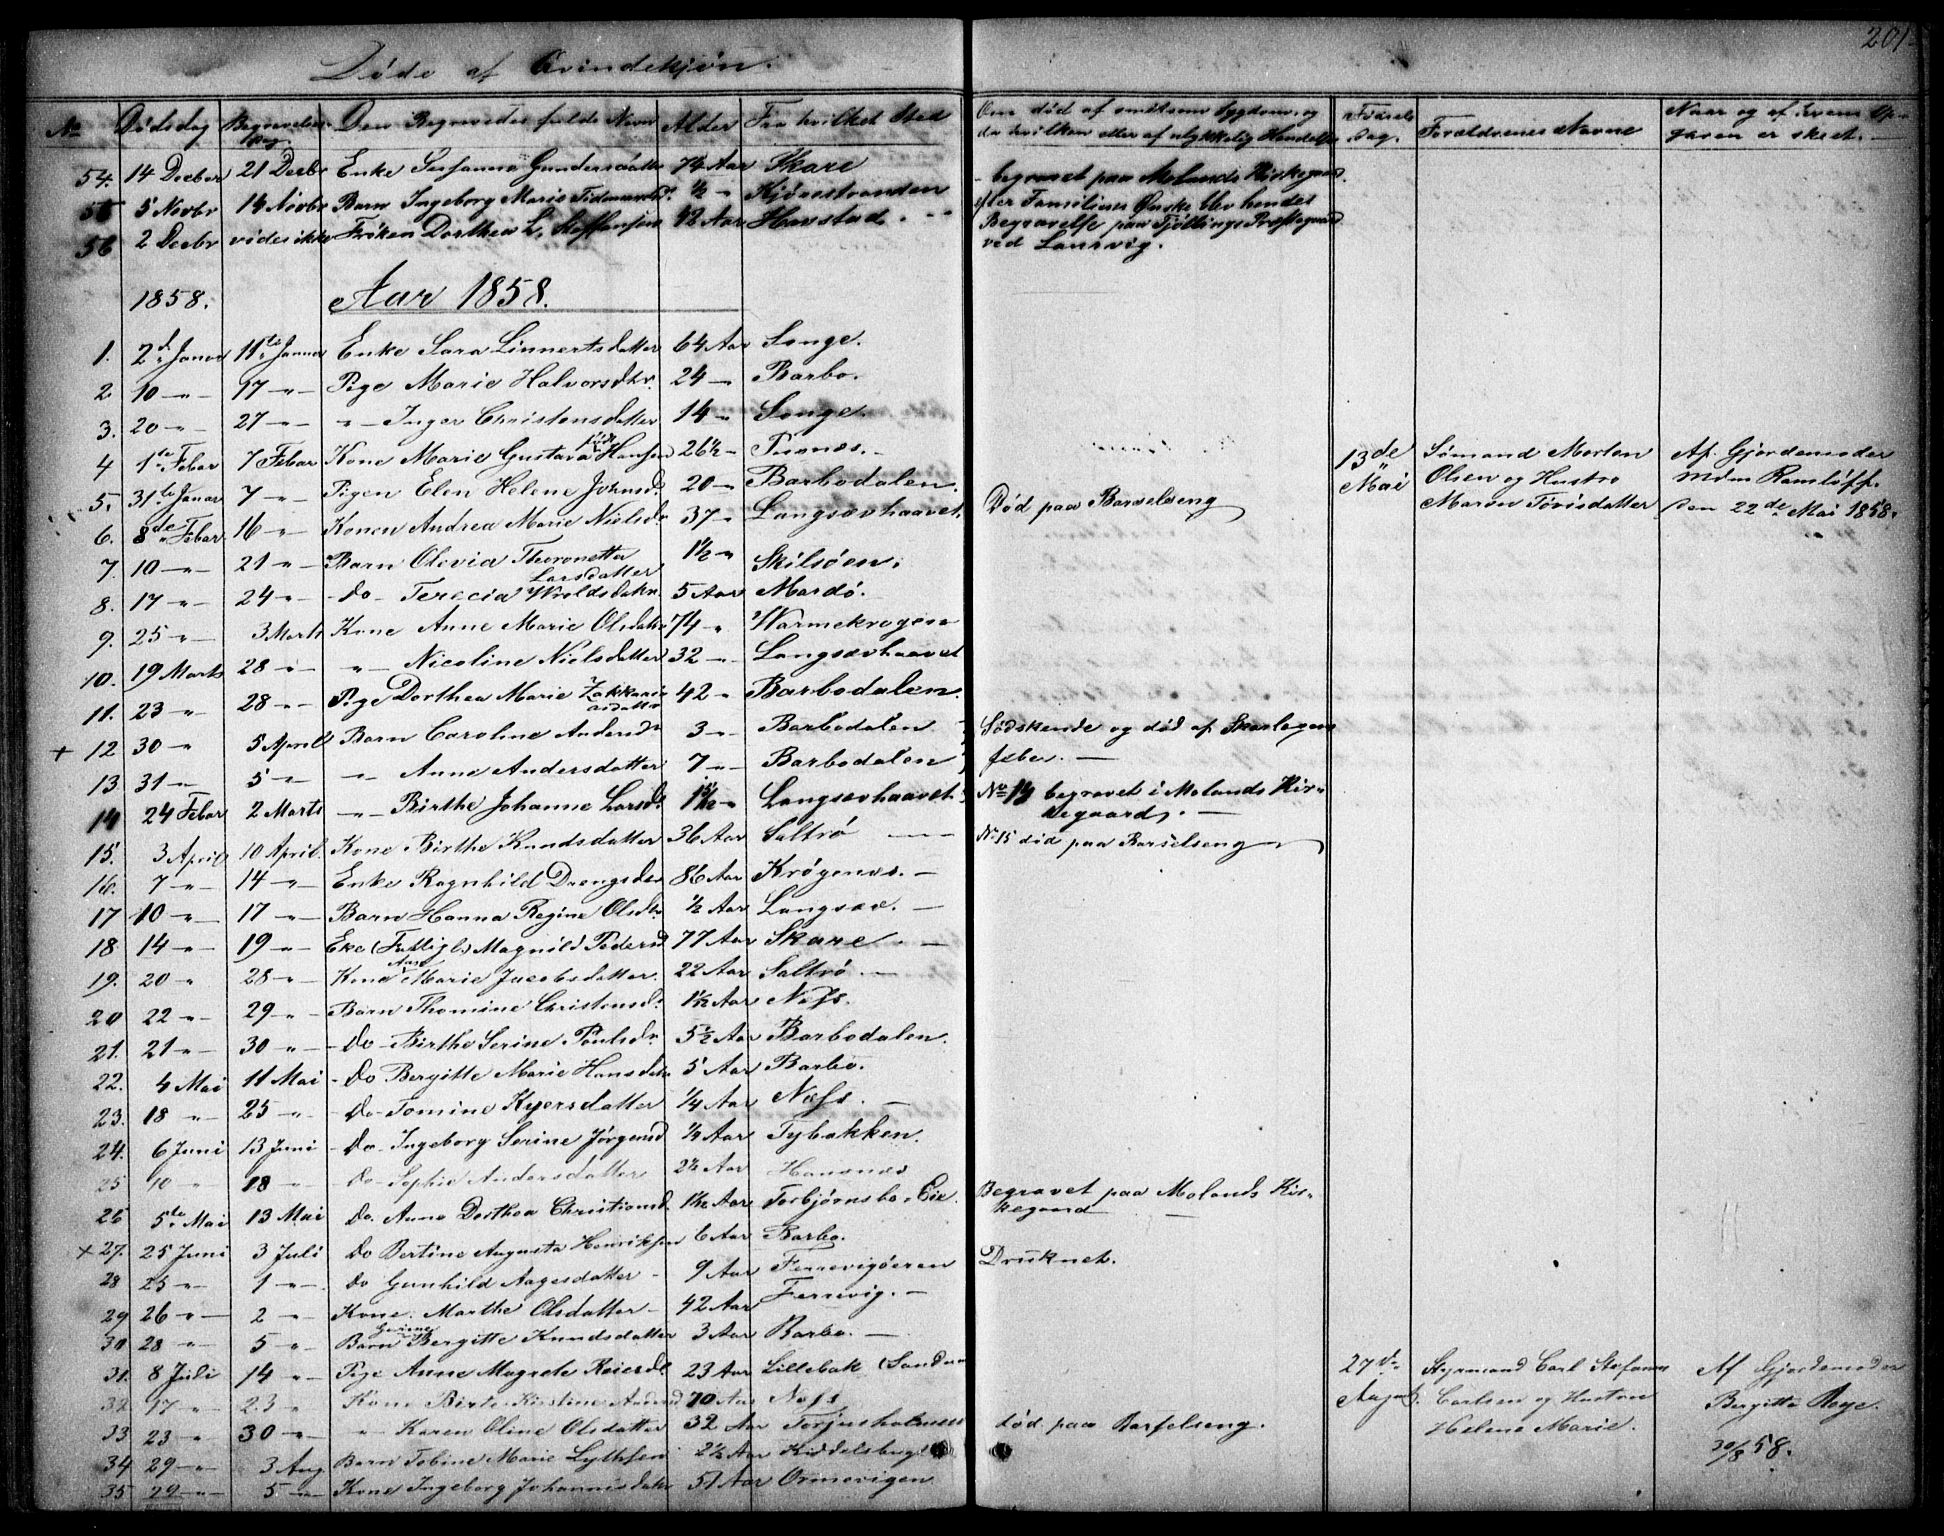 201
Døde af Qvindekjøn.
No Dødsdag Begravelses Dag Den Begravedes fulde Navn Alder Fra hvilket Sted Om død af smitsom Sygdom, og da hvilken eller af ulykkelig Hændelse Fødsels Dag. Forældrenes Navne Naar og af hvem
54. 14 Decbr 21 Decbr Enke Susanne Gundersdatter 74 Aar Skare - begravet paa Molands Kirkegaard.
55 5 Novbr 14 Novbr Barn Ingeborg Marie ½ -"- Kjørrstranden efter Familiens Ønske blev hendes
56 2 Decbr vides ikke Frøken Dorthea L. Steffensen 42 Aar Havstad Begravelse paa Tjøllings Præstegaard
ved Laurvig.
1858. Aar 1858.
1. 2d Januar 11te Januar Enke Sara Linnertsdatter 64 Aar Songe.
2 10 -"- 17 -"- Pige Marie Halvorsdtr. 24 -"- Barbo.
3. 20 -"- 27 -"- -"- Inger Christensdatter 14 -"- Songe.
4 1te Febar 7 Febar Kone Marie Gustava født Hansen 26½ -"-
5. 31te Januar 7 -"- Pigen Elen Helene Johnsd. 20 -"- Barbodalen.
6. 8de Febar 16 -"- Konen Andrea Marie Nielsdr 37 -"- Langsævhaavet. Død paa Barselseng
13de Mai Sømand Morten Olsen og Hustro Maren Tovisdatter
Af Gjordemoder Mdm Ramløff. den 22de Mai 1858.
7. 10 -"- 21 -"- Barn Olevia Thoronette Larsdatter 1½ -"- Skilsøen.
8. 17 -"- 24 -"- -Do- Terecia 5 Aar Mardø.
9. 25 -"- 3 Marts Kone Anne Marie Olsdatr 74 -"- Warmekrogen
10. 19 Marts 28 -"- -"- Nicoline Nielsdatter 32 -"- Langsævhaavet
11. 23 -"- 28 -"- Pige Dorthea Marie Zakkariasdatter 42 -"- Barbodalen.
+ 12 30 -"- 5 April Barn Caroline Andersdr 3 -"- Barbodalen Sødskende og død af Skarlagens
13 31 -"- 5 -"- -"- Anne Andersdatter 7 -"- Barbodalen feber. —
14 24 Febar 2 Marts -"- Birthe Johanne Larsd. 1½ -"- Langsævhaavet. No 14 begravet i Molands Kir-
kegaard. —
15. 3 April 10 April. Kone Birthe Knudsdatter 36 Aar Saltrø No 15 død paa Barselseng
16. 7 -"- 14 -"- Enke Ragnhild Drengsdr 86 Aar Krøgenes. —
17 10 -"- 17 -"- Barn Hanna Regine Olsdr. ½ Aar Langsæe. —
18 14 -"- 19 -"- Eke (Fattigl.) Magnild Pedersd 77 Aar Skare. —
19. 20 -"- 28 -"- Kone Aase Marie Jacobsdatter. 22 Aar Saltrø. —
20 22 -"- 29 -"- Barn Thomine Christensd. 1½ Aar Næss.
21. 21 -"- 30 -"- -Do- Birthe Serine Poulsdr 5½ Aar Barbodalen.
22. 4 Mai 11 Mai -Do Bergitte Marie Hansdatr 5 Aar Barbo.
23. 18 -"- 25 -"- -Do- Tomine Kyersdatter ¼ Aar Næss. —
24. 6 Juni 13 Juni -Do- Ingeborg Serine Jørgensd ½ Aar Tybakken.
25 10 -"- 18 -"- Do- Sophie Andersdatter 2½ Aar
26 5te Mai 13 Mai Do. Anne Dorthea Christiansd. 1½ Aar Torbjørnsbo Eie. Begravet paa Molands Kir-
kegaard
+ 27. 25 Juni 3 Juli Do Bertine Augusta Henriksen 6 Aar Barbo. Druknet.
28 25 -"- 1 -"- Do Gunhild Aagesdatter - 9 Aar
29 26 -"- 2 -"- Kone. Marthe Olsdatter - 42 Aar Ferrevig. —
30 28 -"- 5 -"- Barn Bergitte Knudsdatter 3 Aar Barbo. —
31. 8 Juli 14 -"- Pige Anne Magrete Reiersd. 23 Aar Lillebak
32 17 -"- 23 -"- Kone Birte Kirstine 70 Aar Næss.
33 23 -"- 30 -"- -"- Karen Oline Olsdatter 32 Aar Torjusholmen død paa Barselseng.
27de August. Styrmand Carl Stefanus Carlsen og Hustru Helene Marie.
Af Gjordemoder Bergitte Boye. 30/8 58.
34 29 -"- 3 Aug Barn Tobine Marie 2½ Aar
35 29 -"- 5 -"- Kone Ingeborg Johannisdatr 51 Aar Ormevigen